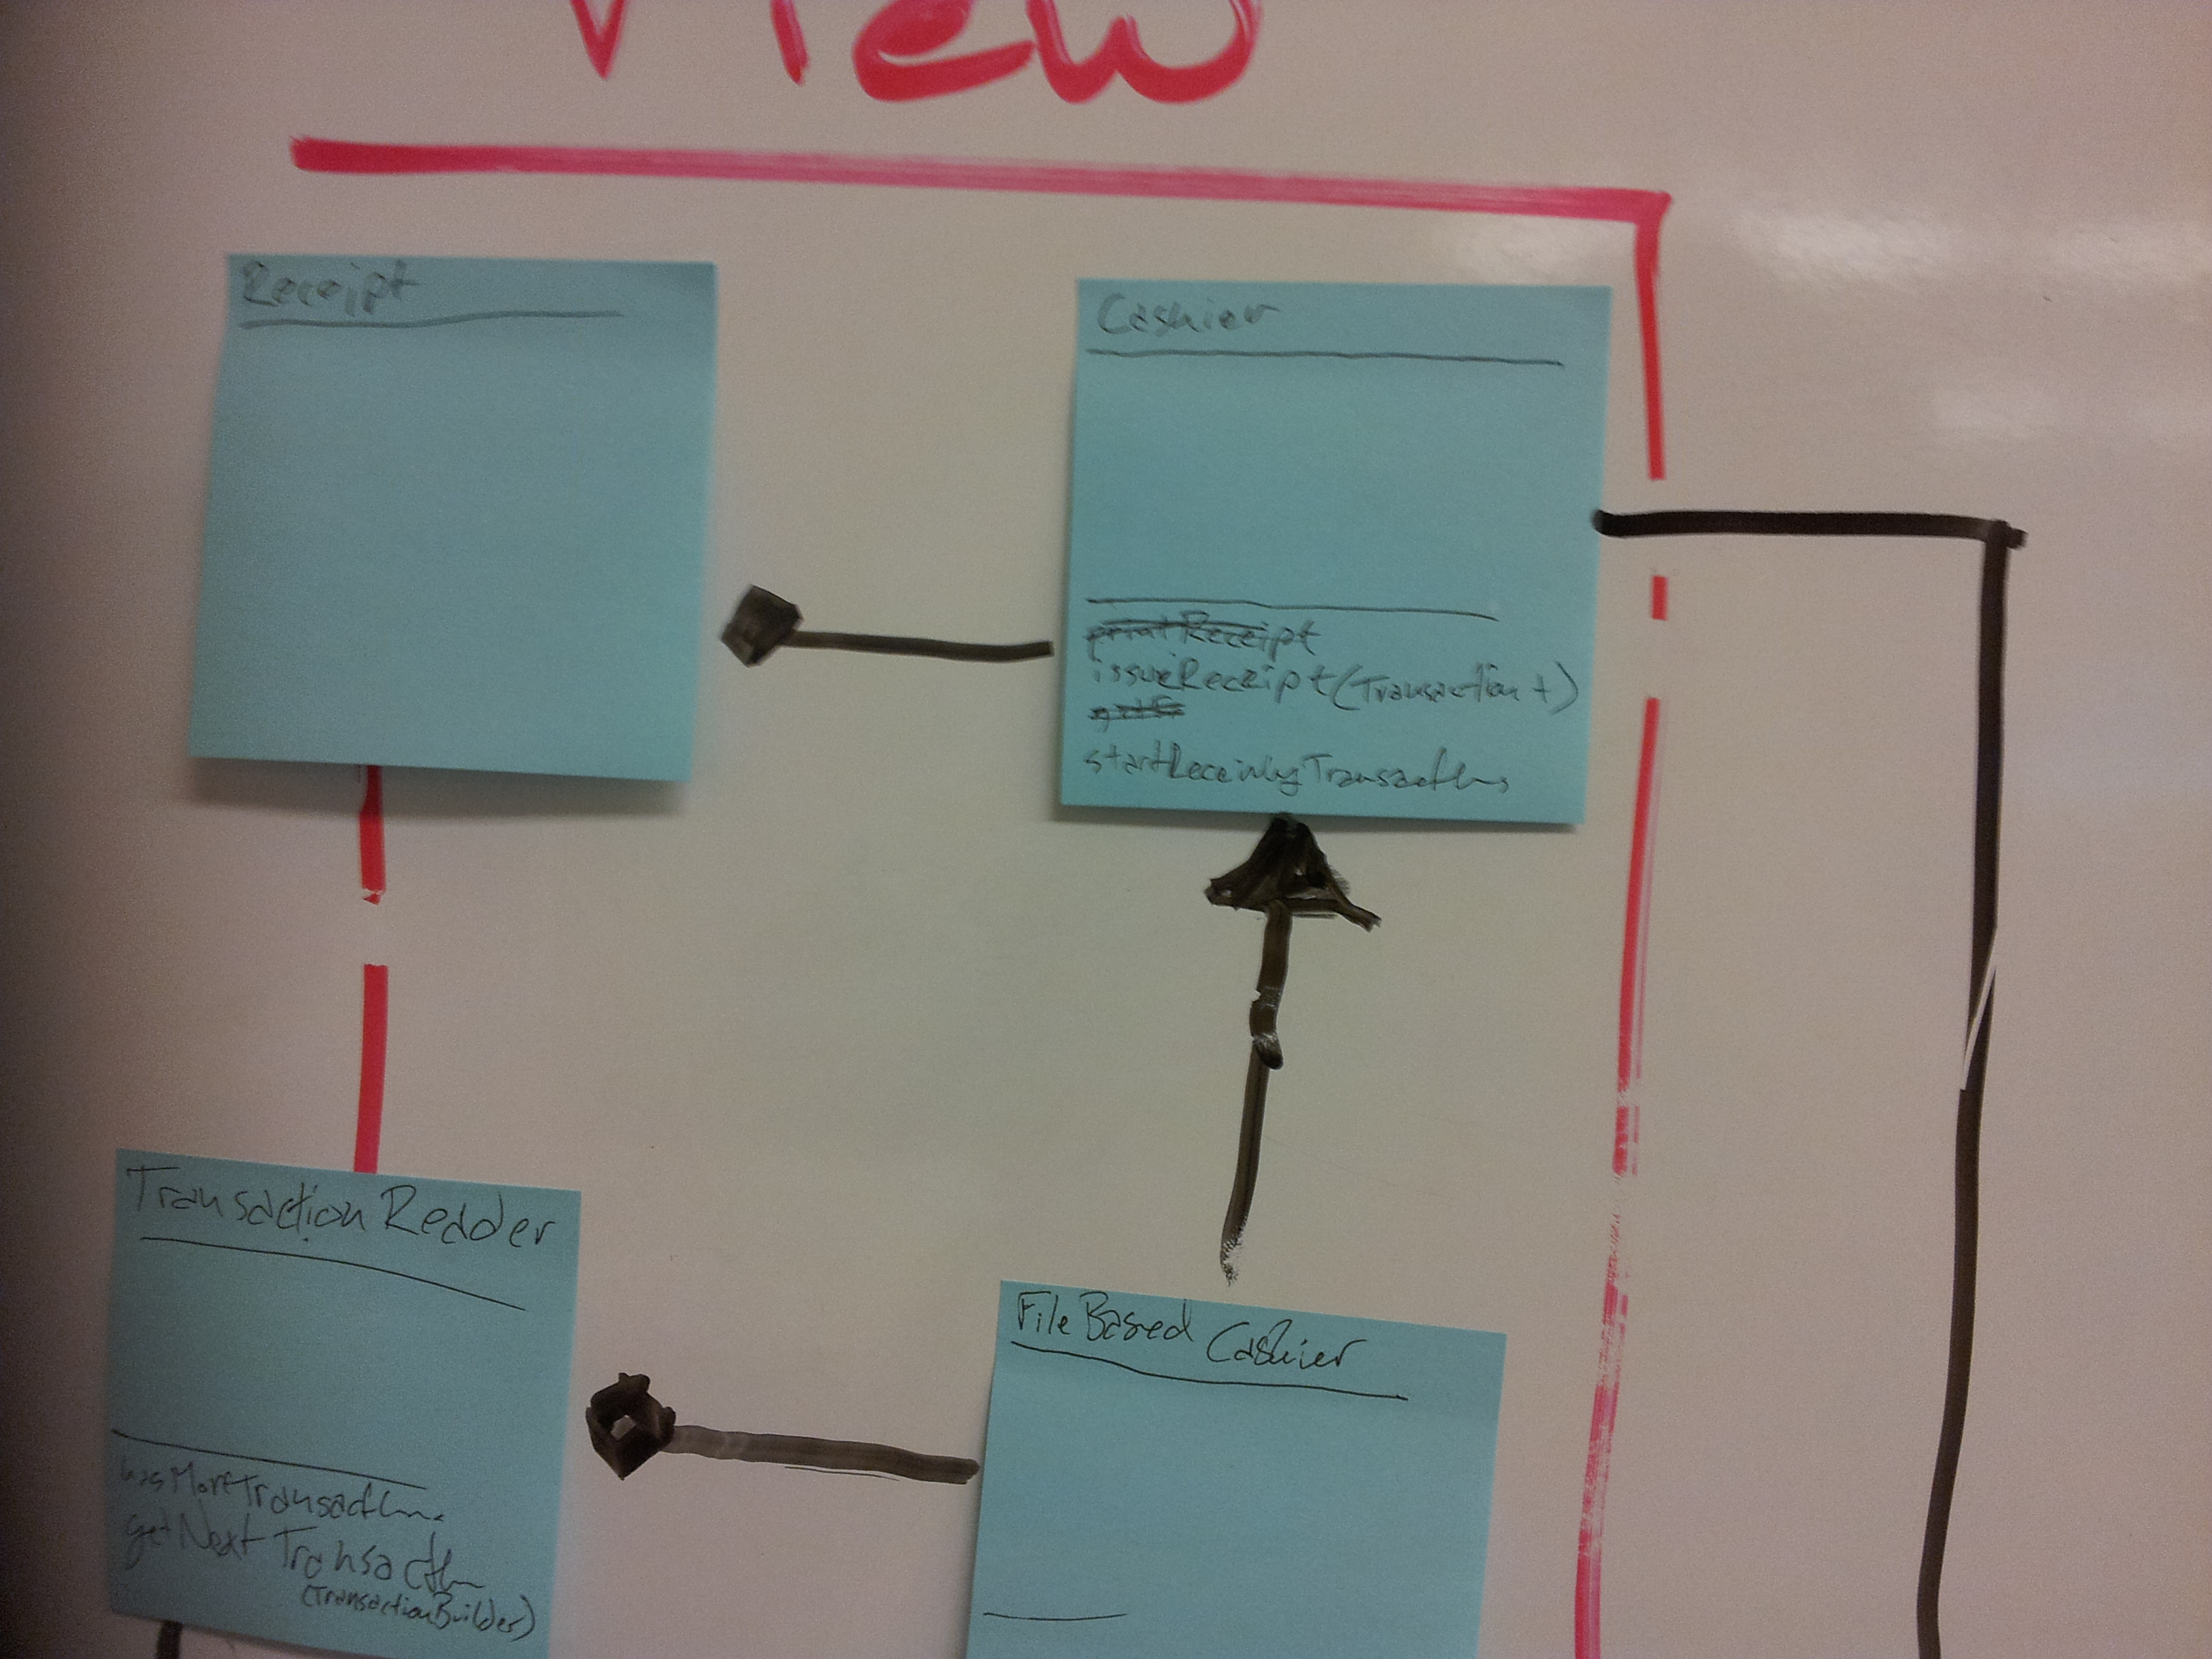 View
Receipt
Cashier
printReceipt
issueReceipt(Transaction t)
startReceivingTransactions
Transaction Reader
hasMoreTransactions
getNext Transaction
(TransactionBuilder)
File Based Cashier